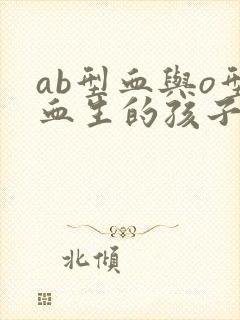 ab型血與o型
血生的孩子
北傾